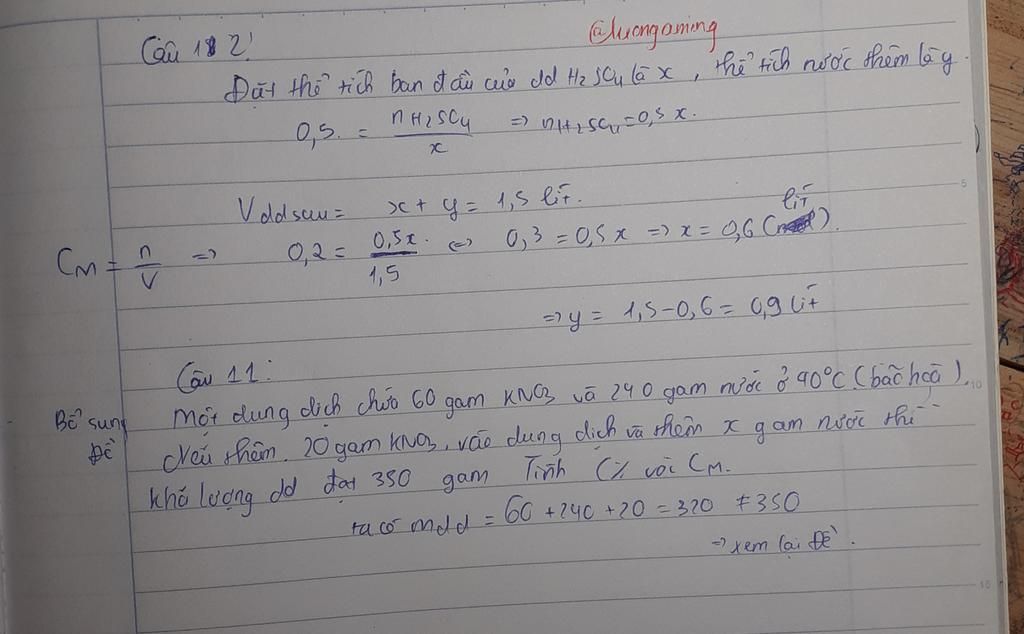 @luongaming
Câu 12:
Đặt thể tích ban đầu của dd H₂SO₄ là x, thể tích nước thêm là y.
0,5 = nH₂SO₄ / x => nH₂SO₄ = 0,5x.
Vddsau = x + y = 1,5 lít.
CM = n / V => 0,2 = 0,5x / 1,5 <=> 0,3 = 0,5x => x = 0,6 (lít).
=> y = 1,5 - 0,6 = 0,9 lít
Câu 11:
Bổ sung Đề
Một dung dịch chứa 60 gam KNO3 và 240 gam nước ở 90°C (bão hoà).
Nếu thêm 20 gam KNO3, vào dung dịch và thêm x gam nước thì
khố lượng dd đạt 350 gam Tính C% với CM.
ta có mdd = 60 + 240 + 20 = 320 ≠ 350
=> xem lại Đề.